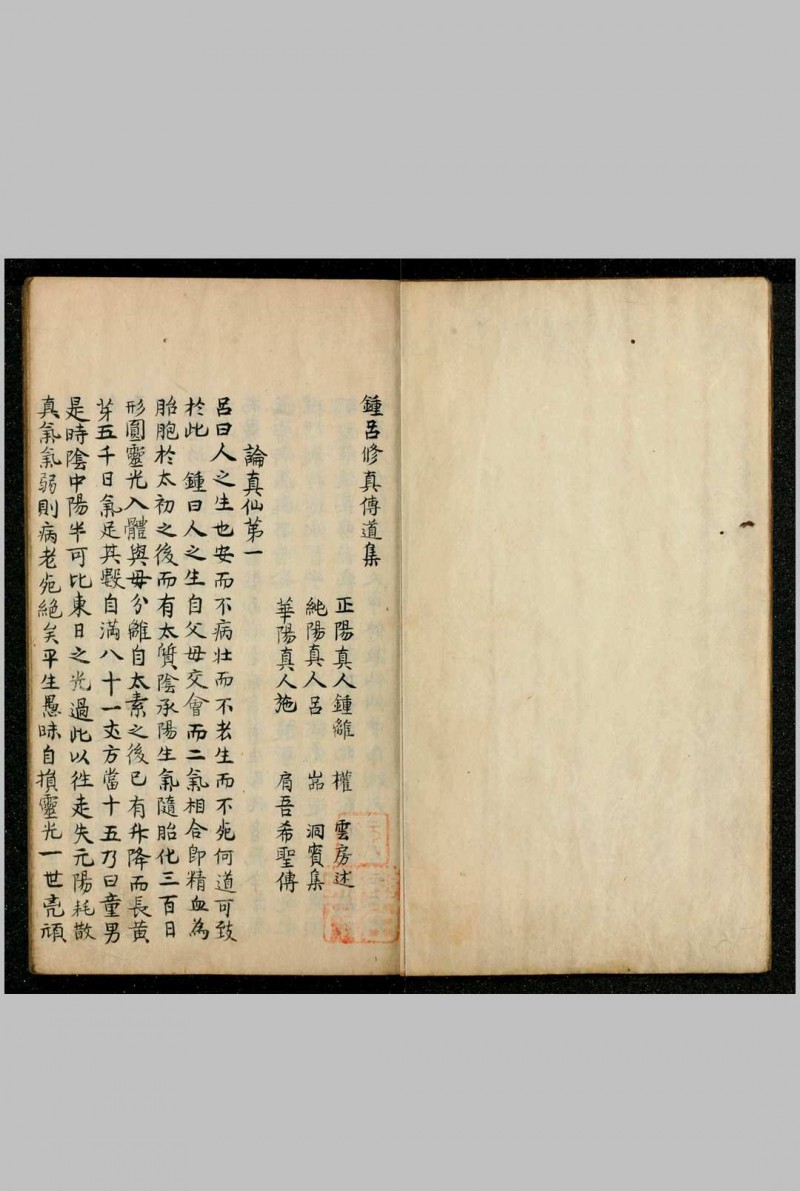 鍾呂修真傳道集
正陽真人鍾離　權　雲房述
純陽真人呂　嵓　洞賓集
華陽真人施　肩吾希聖傳
論真仙第一
呂曰人之生也安而不病壯而不老生而不死何道可致
於此　鍾曰人之生自父母交會而二氣相合即精血為
胎胞於太初之後而有太質陰承陽生氣隨胎化三百日
形圓靈光入體與母分離自太素之後已有升降而長黃
芽五千日氣足其數自滿八十一丈方當十五乃曰童男
是時陰中陽半可比東日之光過此以往走失元陽耗散
真氣氣弱則病老死絕矣平生愚昧自損靈光一世兇頑